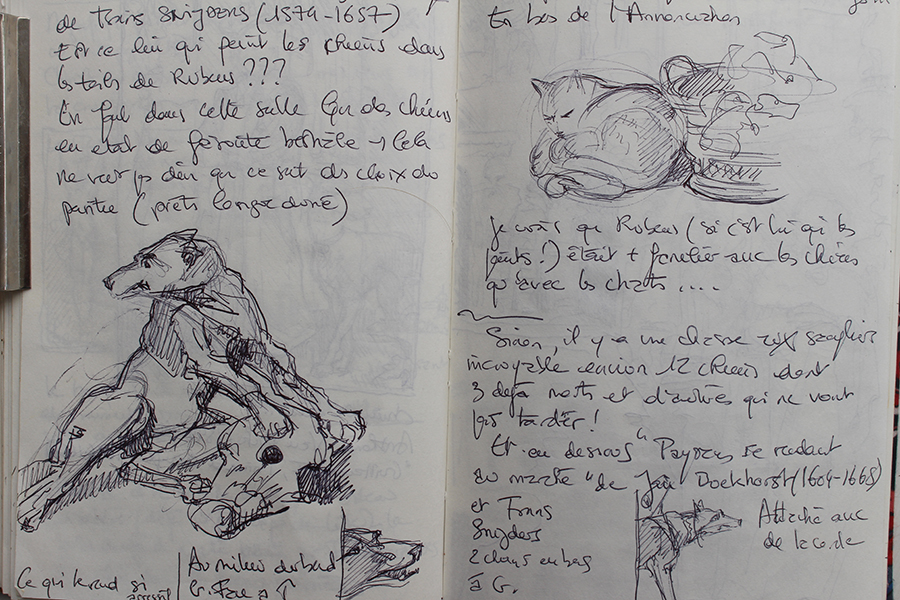 de Frans Snijders (1579-1657)
Est ce lui qui peint les chiens dans
les toiles de Rubens ???
En fait dans cette salle que des chiens
en état de férocité bestiale → Cela
ne veut pas dire que ce soit des choix du
peintre (prêts longue durée)
Ce qui le rend si
Au milieu du bord
En bas de l'Annonciation
Je crois que Rubens (si c'est lui qui les
peints !) était + familier avec les chiens
qu'avec les chats ....
Sinon, il y a une chasse aux sanglier
incroyable environ 12 chiens dont
3 déjà morts et d'autres qui ne vont
pas tarder !
Et en dessous "Paysans se rendant
au marché" de Jan Boekhorst (1604-1668)
et Frans
Snijders
2 chiens en bas
à G.
Attaché avec
de la corde